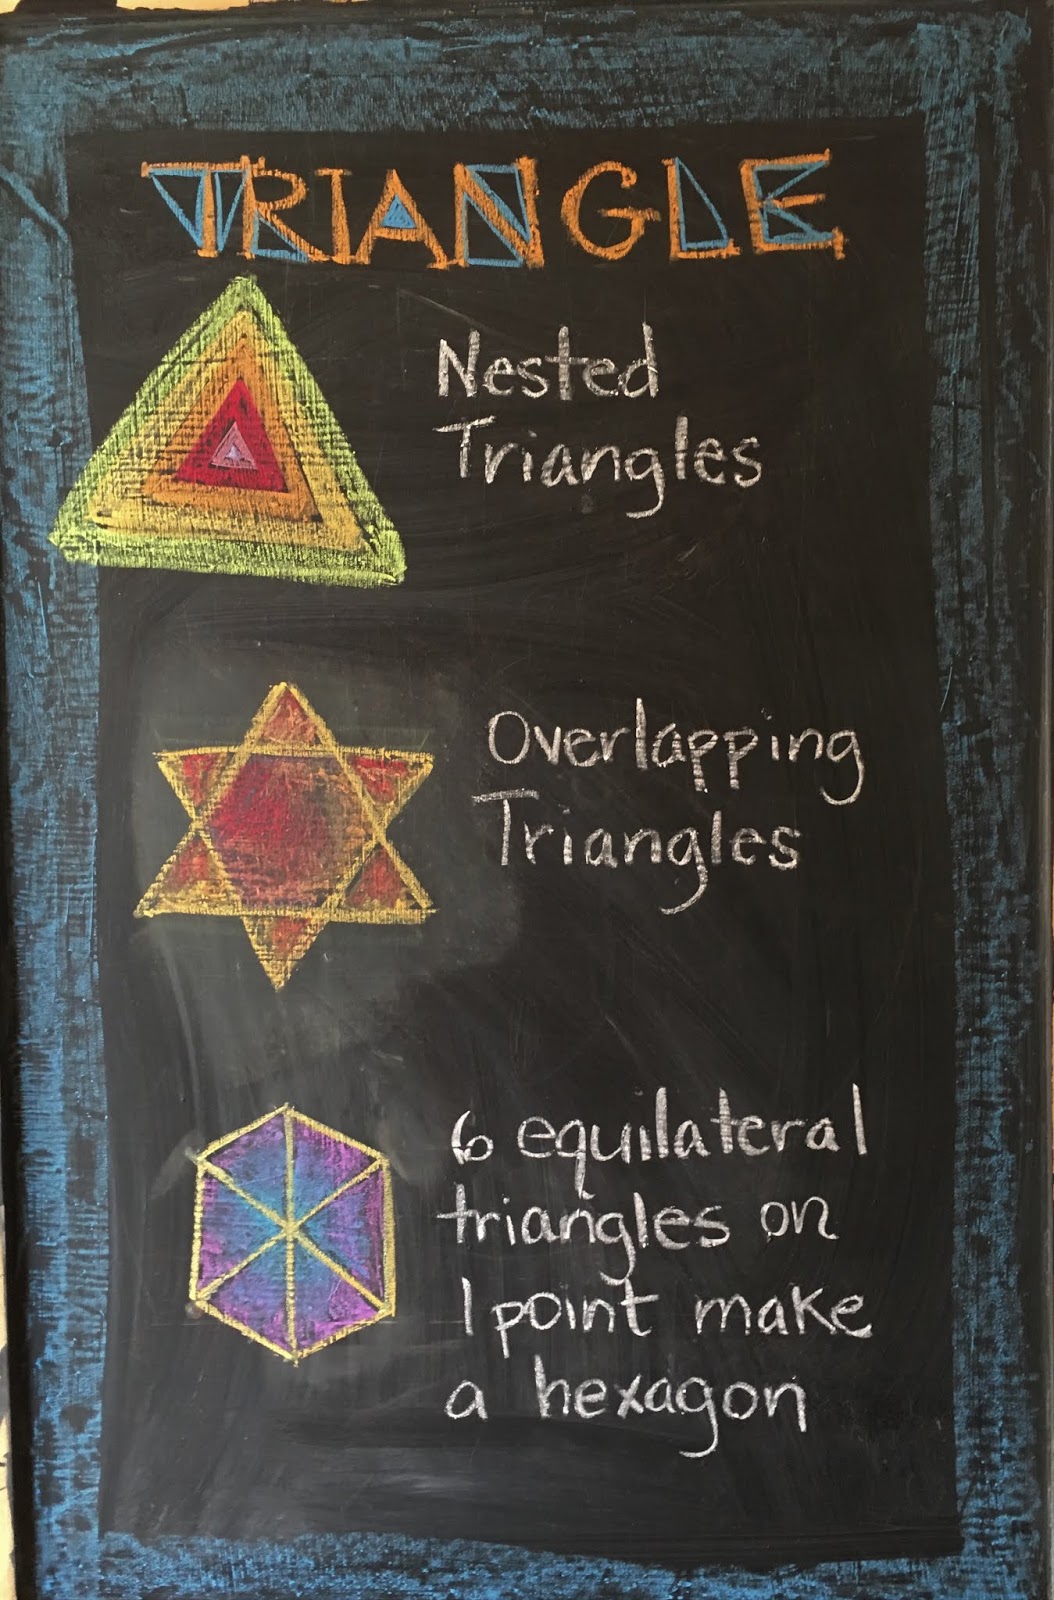 TRIANGLE
Nested
Triangles
Overlapping
Triangles
6 equilateral
triangles on
1 point make
a hexagon